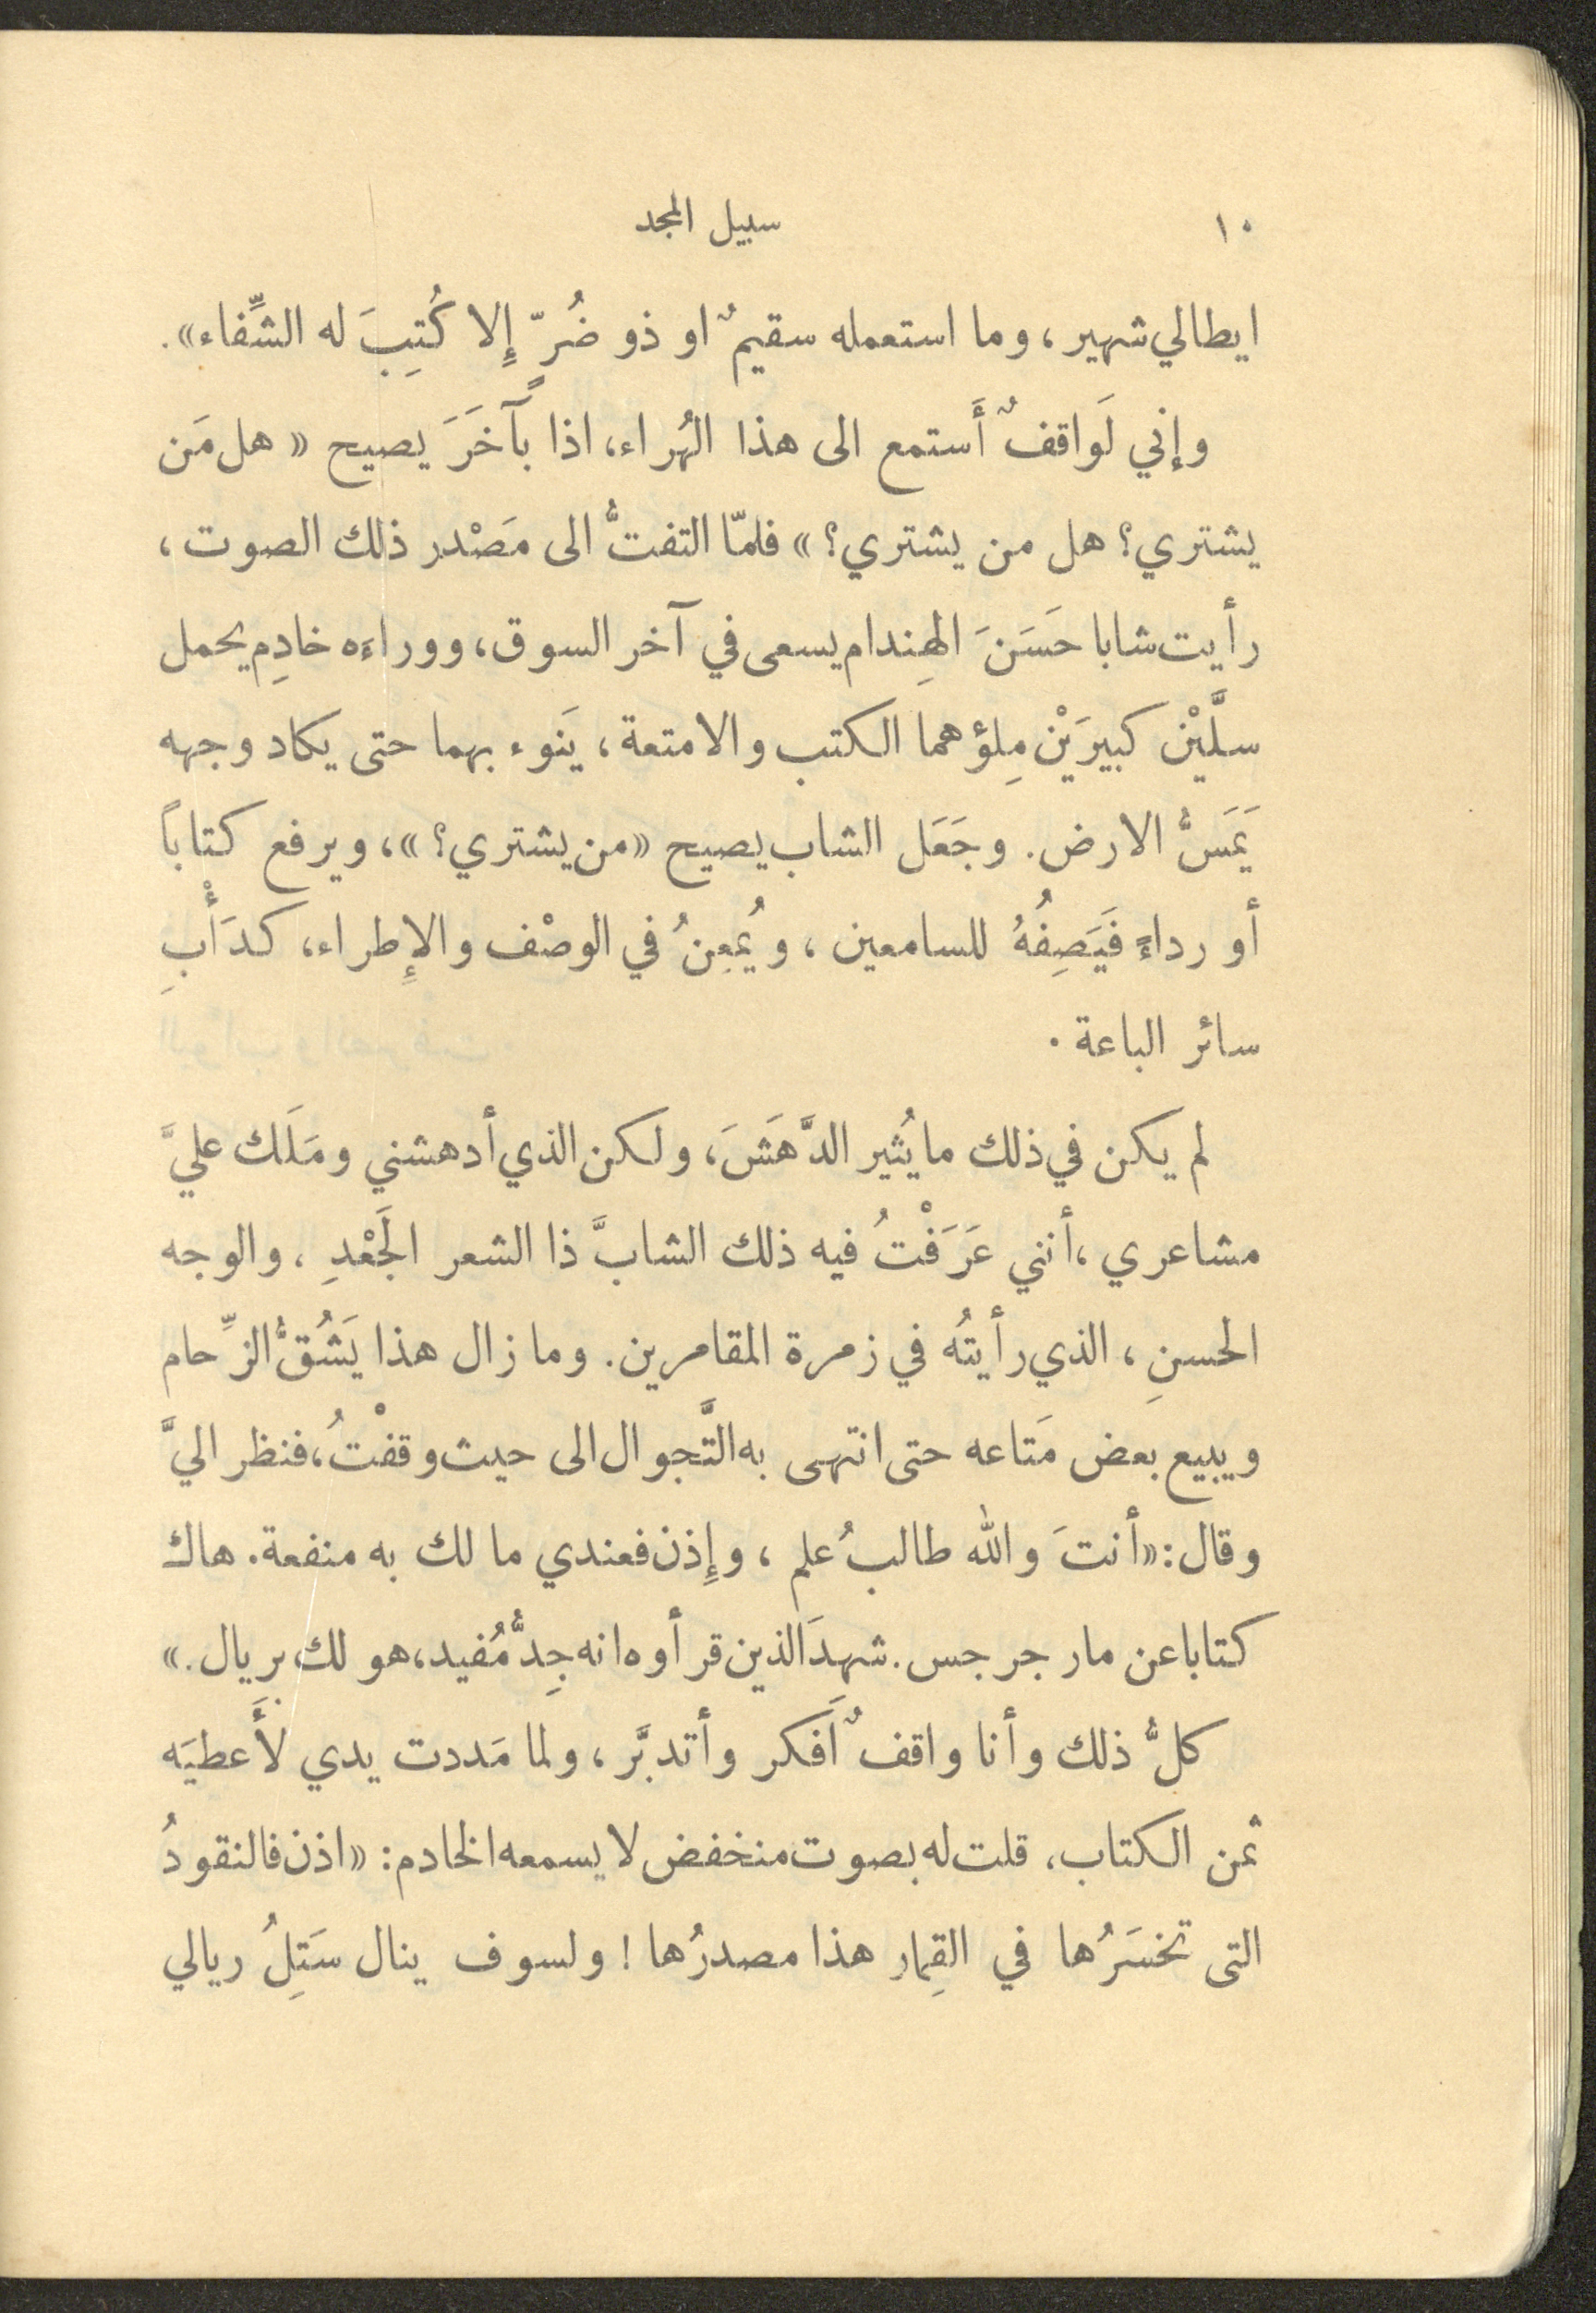 ١٠ سبيل المجد
ايطالي شهير، وما استعمله سقيمٌ او ذو ضُرٍّ إِلا كُتِبَ له الشِّفاء».
وإني لَواقفٌ أَستمع الى هذا الهُراء، اذا بآخَرَ يصيح «هل مَن
يشتري؟ هل من يشتري؟» فلمّا التفتُّ الى مَصْدر ذلك الصوت،
رأيت شابا حَسَنَ الهِندام يسعى في آخر السوق، ووراءَه خادِم يحمل
سلَّيْن كبيرَيْن مِلؤهما الكتب والامتعة، يَنوء بهما حتى يكاد وجهه
يَمَسُّ الارض. وجَعَل الشاب يصيح «من يشتري؟»، ويرفع كتاباً
أو رداءً فَيَصِفُهُ للسامعين، ويُمعِنُ في الوصْف والإِطراء، كدَأْبِ
سائر الباعة.
لم يكن في ذلك ما يُثير الدَّهَشَ، ولكن الذي أدهشني ومَلَك عليَّ
مشاعري، أنني عَرَفْتُ فيه ذلك الشابَّ ذا الشعر الجَعْدِ، والوجه
الحسنِ، الذي رأيتُه في زمرة المقامرين. وما زال هذا يَشُقُّ الزِّحام
ويبيع بعض مَتاعه حتى انتهى به التَّجوال الى حيث وقفْتُ، فنظر اليَّ
وقال: «أنتَ والله طالبُ علم، وإِذن فعندي ما لك به منفعة. هاك
كتابا عن مار جرجس. شهدَ الذين قرأوه انه جِدُّ مُفيد، هو لك بريال.»
كلُّ ذلك وأنا واقفٌ اَفكر وأتدبَّر، ولما مَددت يدي لأَعطيَه
ثمن الكتاب، قلت له بصوت منخفض لا يسمعه الخادم: «اذن فالنقودُ
التى تخسَرُها في القِمار هذا مصدرُها! ولسوف ينال سَتِلُ ريالي